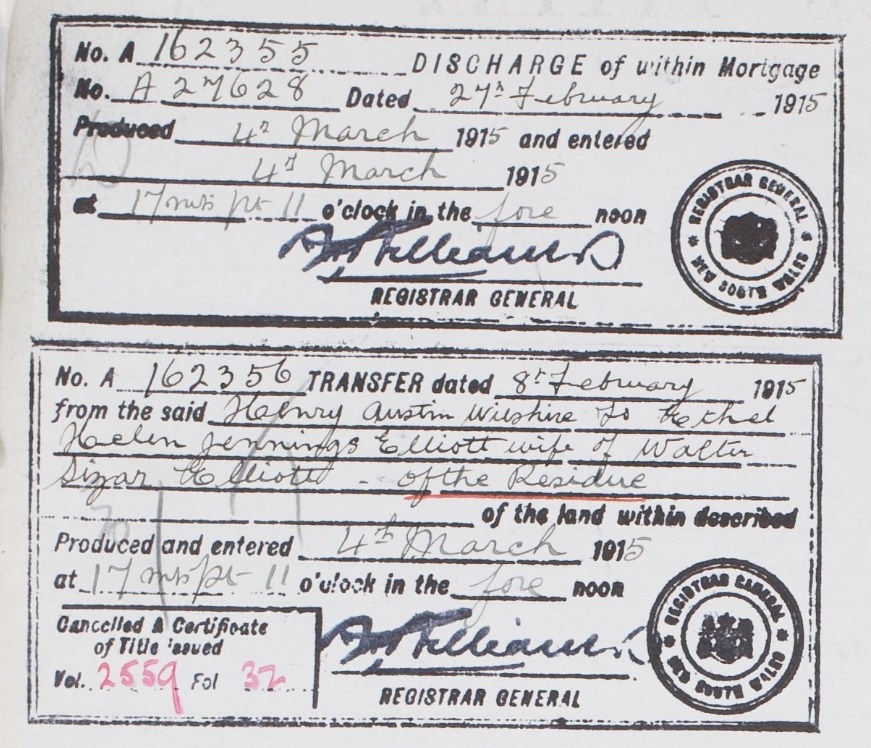 No. A 162355 DISCHARGE of within Mortgage
No. A 27628 Dated 27th February 1915
Produced 4th March 1915 and entered
4th March 1915
at 17 mts pt 11 o'clock in the fore noon
REGISTRAR GENERAL
REGISTRAR GENERAL * NEW SOUTH WALES *
No. A 162356 TRANSFER dated 8th February 1915
from the said Henry Austin Wilshire to Ethel
Helen Jennings Elliott wife of Walter
Sizar Elliott - of the Residue
of the land within described
Produced and entered 4th March 1915
at 17 mts pt 11 o'clock in the fore noon
Cancelled & Certificate
of Title issued
Vol. 2559 Fol 32
REGISTRAR GENERAL
REGISTRAR GENERAL * NEW SOUTH WALES *